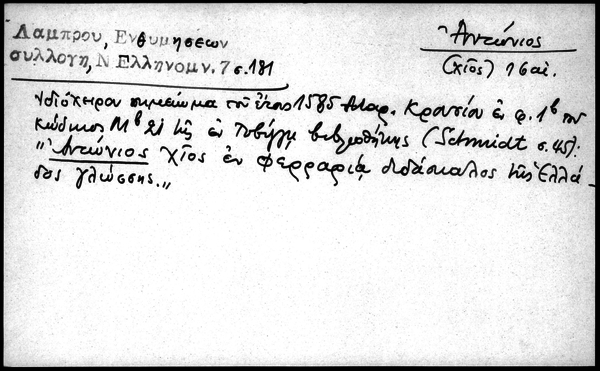 Λαμπρου, Ενθυμησεων
συλλογη, Ν Ελληνομν. 7 σ. 181
Ἀντώνιος
(χῖος) 16 αἰ.
Ἰδιόχειρον σημείωμα τοῦ ἔτους 1585 Μαρ. Κρουσίου ἐν φ. 1b τοῦ
κώδικος Mb 21 τῆς ἐν Τυβίγγῃ βιβλιοθήκης (Schmidt σ. 45):
"Ἀντώνιος χῖος ἐν Φερραρίᾳ διδάσκαλος τῆς Ἑλλά-
δος γλώσσης."